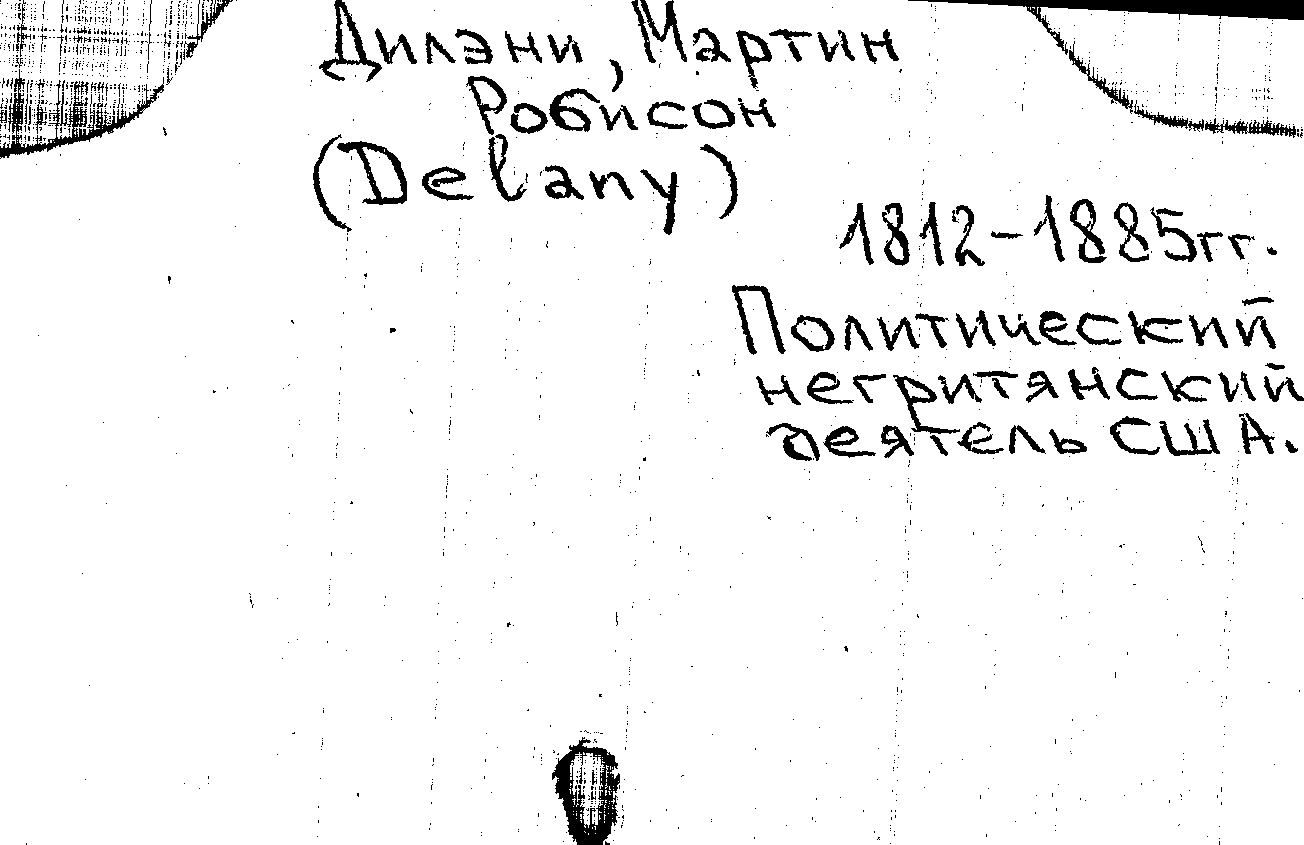 Дилэни, Мартин
Робисон
(Delany)
1812-1885гг.
Политический
негритянский
деятель США.